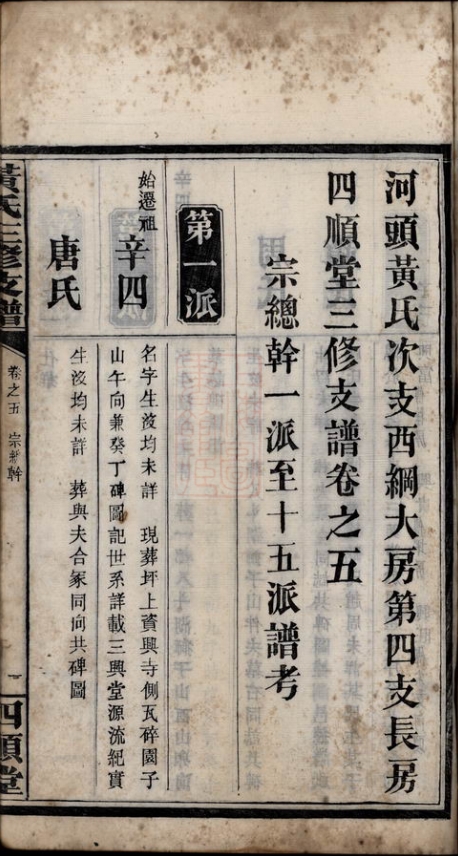 河頭黃氏次支西綱大房第四支長房
四順堂三修支譜卷之五
宗總幹一派至十五派譜考
第一派
始遷祖
辛四
名字生歿均未詳　現葬坪上資興寺側瓦碎園子
山午向兼癸丁碑圖記世系詳載三興堂源流紀實
唐氏
生歿均未詳　葬與夫合冢同向共碑圖
黃氏三修支譜
卷之五　宗總幹
四順堂